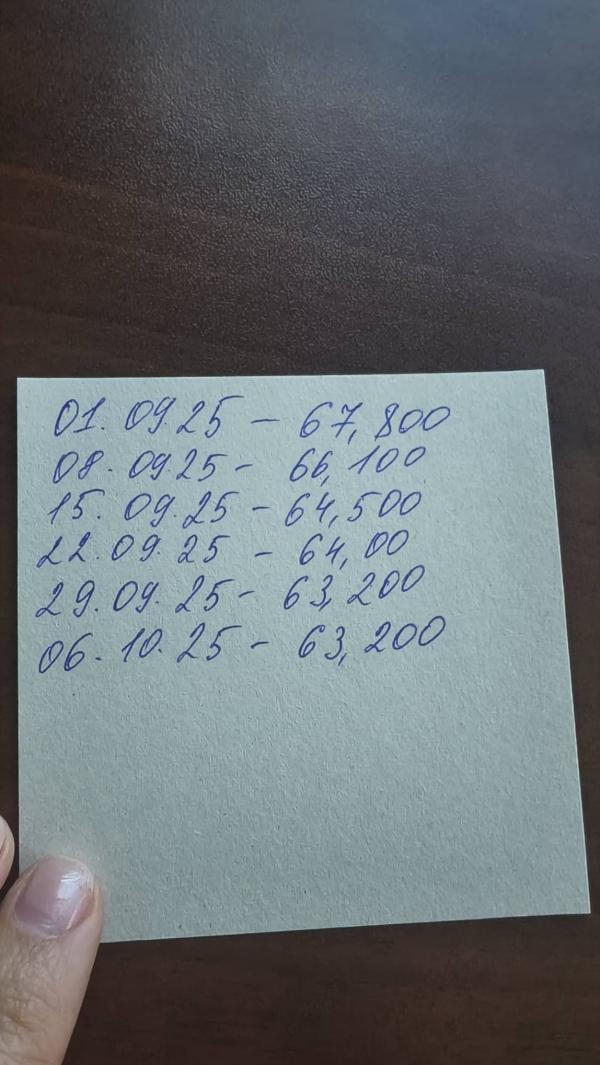 01.09.25 – 67,800
08.09.25 – 66,100
15.09.25 – 64,500
22.09.25 – 64,00
29.09.25 – 63,200
06.10.25 – 63,200